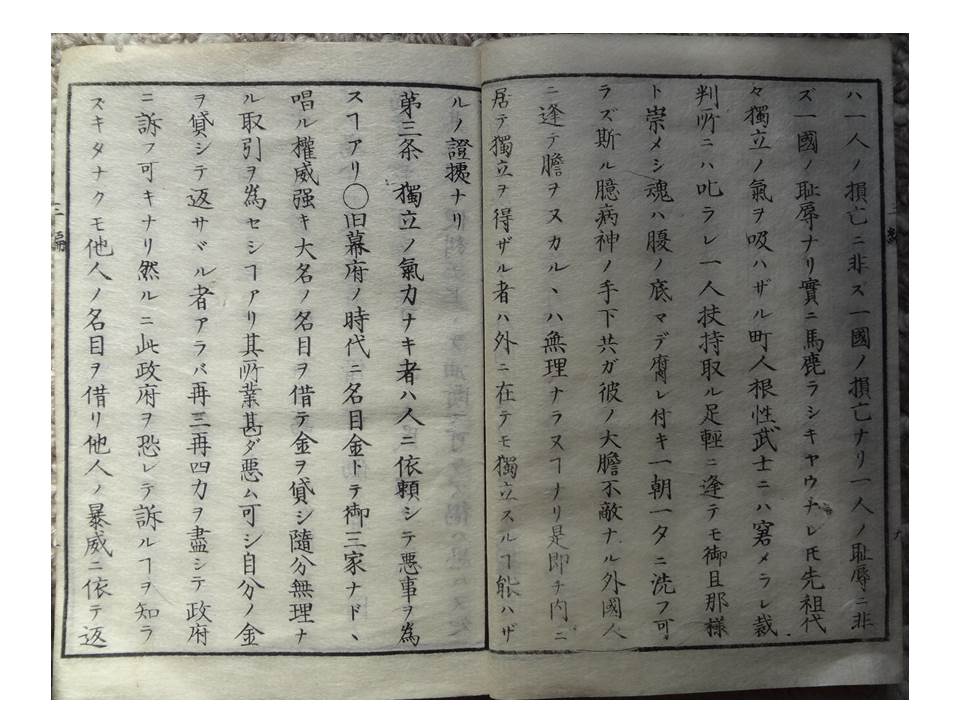 ハ一人ノ損亡ニ非ズ一國ノ損亡ナリ一人ノ恥辱ニ非
ズ一國ノ恥辱ナリ實ニ馬鹿ラシキヤウナレ𪜈先祖代
々獨立ノ氣ヲ吸ハザル町人根性武士ニハ窘メラレ裁
判所ニハ叱ラレ一人扶持取ル足輕ニ逢テモ御旦那樣
ト崇メシ魂ハ腹ノ底マデ腐レ付キ一朝一夕ニ洗フ可
ラズ斯ル臆病神ノ手下共ガ彼ノ大膽不敵ナル外國人
ニ逢テ膽ヲヌカルヽハ無理ナラヌヿナリ是即チ内ニ
居テ獨立ヲ得ザル者ハ外ニ在テモ獨立スルヿ能ハザ
ルノ證據ナリ
第三条 獨立ノ氣力ナキ者ハ人ニ依頼シテ悪事ヲ為
スヿアリ○旧幕府ノ時代ニ名目金トテ御三家ナドヽ
唱ル權威强キ大名ノ名目ヲ借テ金ヲ貸シ隨分無理ナ
ル取引ヲ為セシヿアリ其所業甚ダ悪ム可シ自分ノ金
ヲ貸シテ返サヾル者アラバ再三再四力ヲ盡シテ政府
ニ訴フ可キナリ然ルニ此政府ヲ恐レテ訴ルヿヲ知ラ
ズキタナクモ他人ノ名目ヲ借リ他人ノ暴威ニ依テ返
三編
九